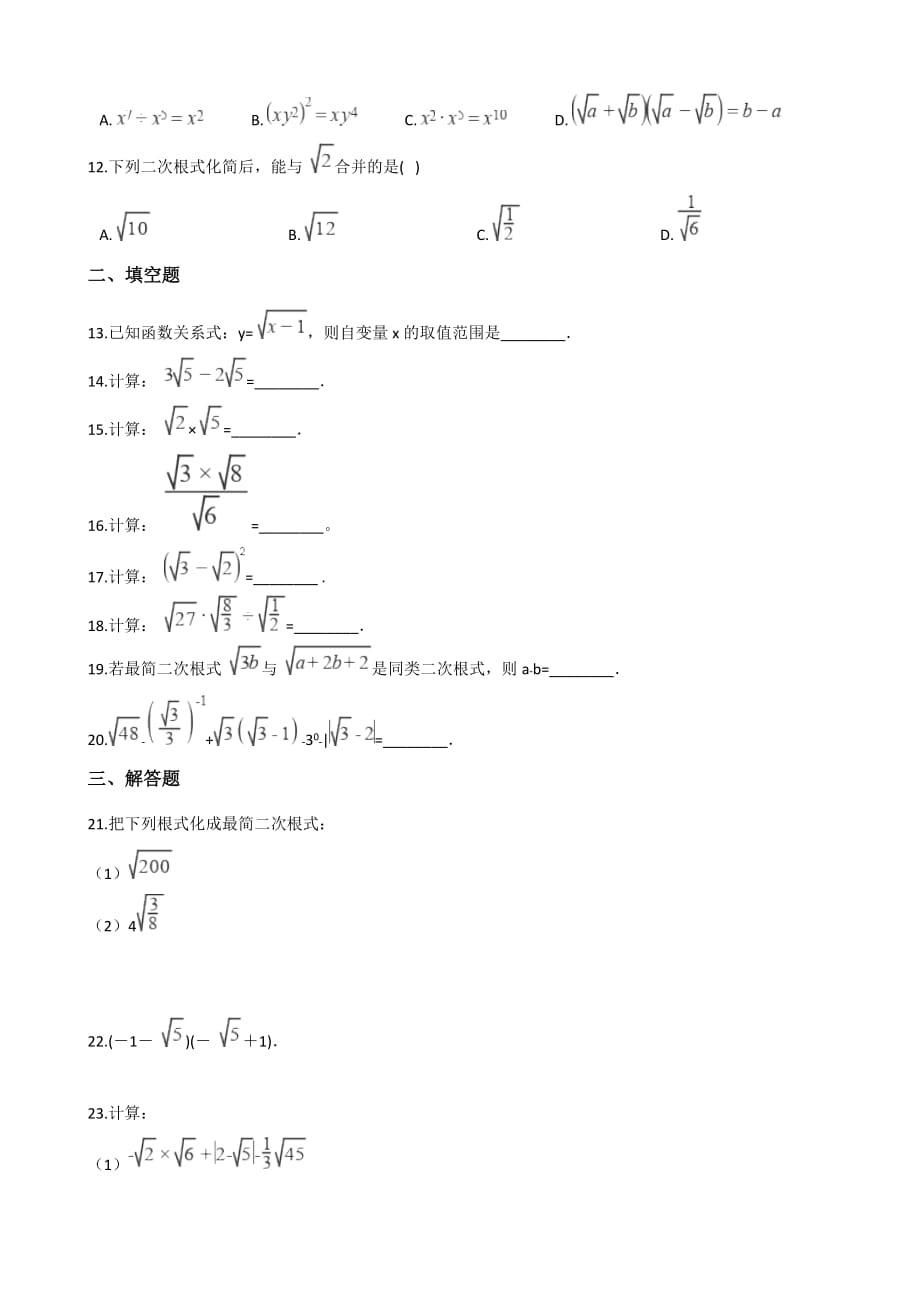 A. x⁷÷x⁵=x² B. (xy²)²=xy⁴ C. x²·x⁵=x¹⁰ D. (√a+√b)(√a−√b)=b−a
12.下列二次根式化简后，能与 √2 合并的是( )
A. √10 B. √12 C. √(1/2) D. 1/√6
二、填空题
13.已知函数关系式：y=√(x−1)，则自变量 x 的取值范围是________．
14.计算： 3√5−2√5=________．
15.计算： √2×√5=________．
16.计算： (√3×√8)/√6=________。
17.计算： (√3−√2)²=________ .
18.计算： √27·√(8/3)÷√(1/2)=________．
19.若最简二次根式 √(3b) 与 √(a+2b+2) 是同类二次根式，则 a-b=________．
20.√48-(√3/3)⁻¹+√3(√3-1)-3⁰-||√3-2|=________．
三、解答题
21.把下列根式化成最简二次根式：
（1）√200
（2）4√(3/8)
22.(－1－ √5 )(－ √5 ＋1)．
23.计算：
（1）-√2×√6+|2-√5|-(1/3)√45